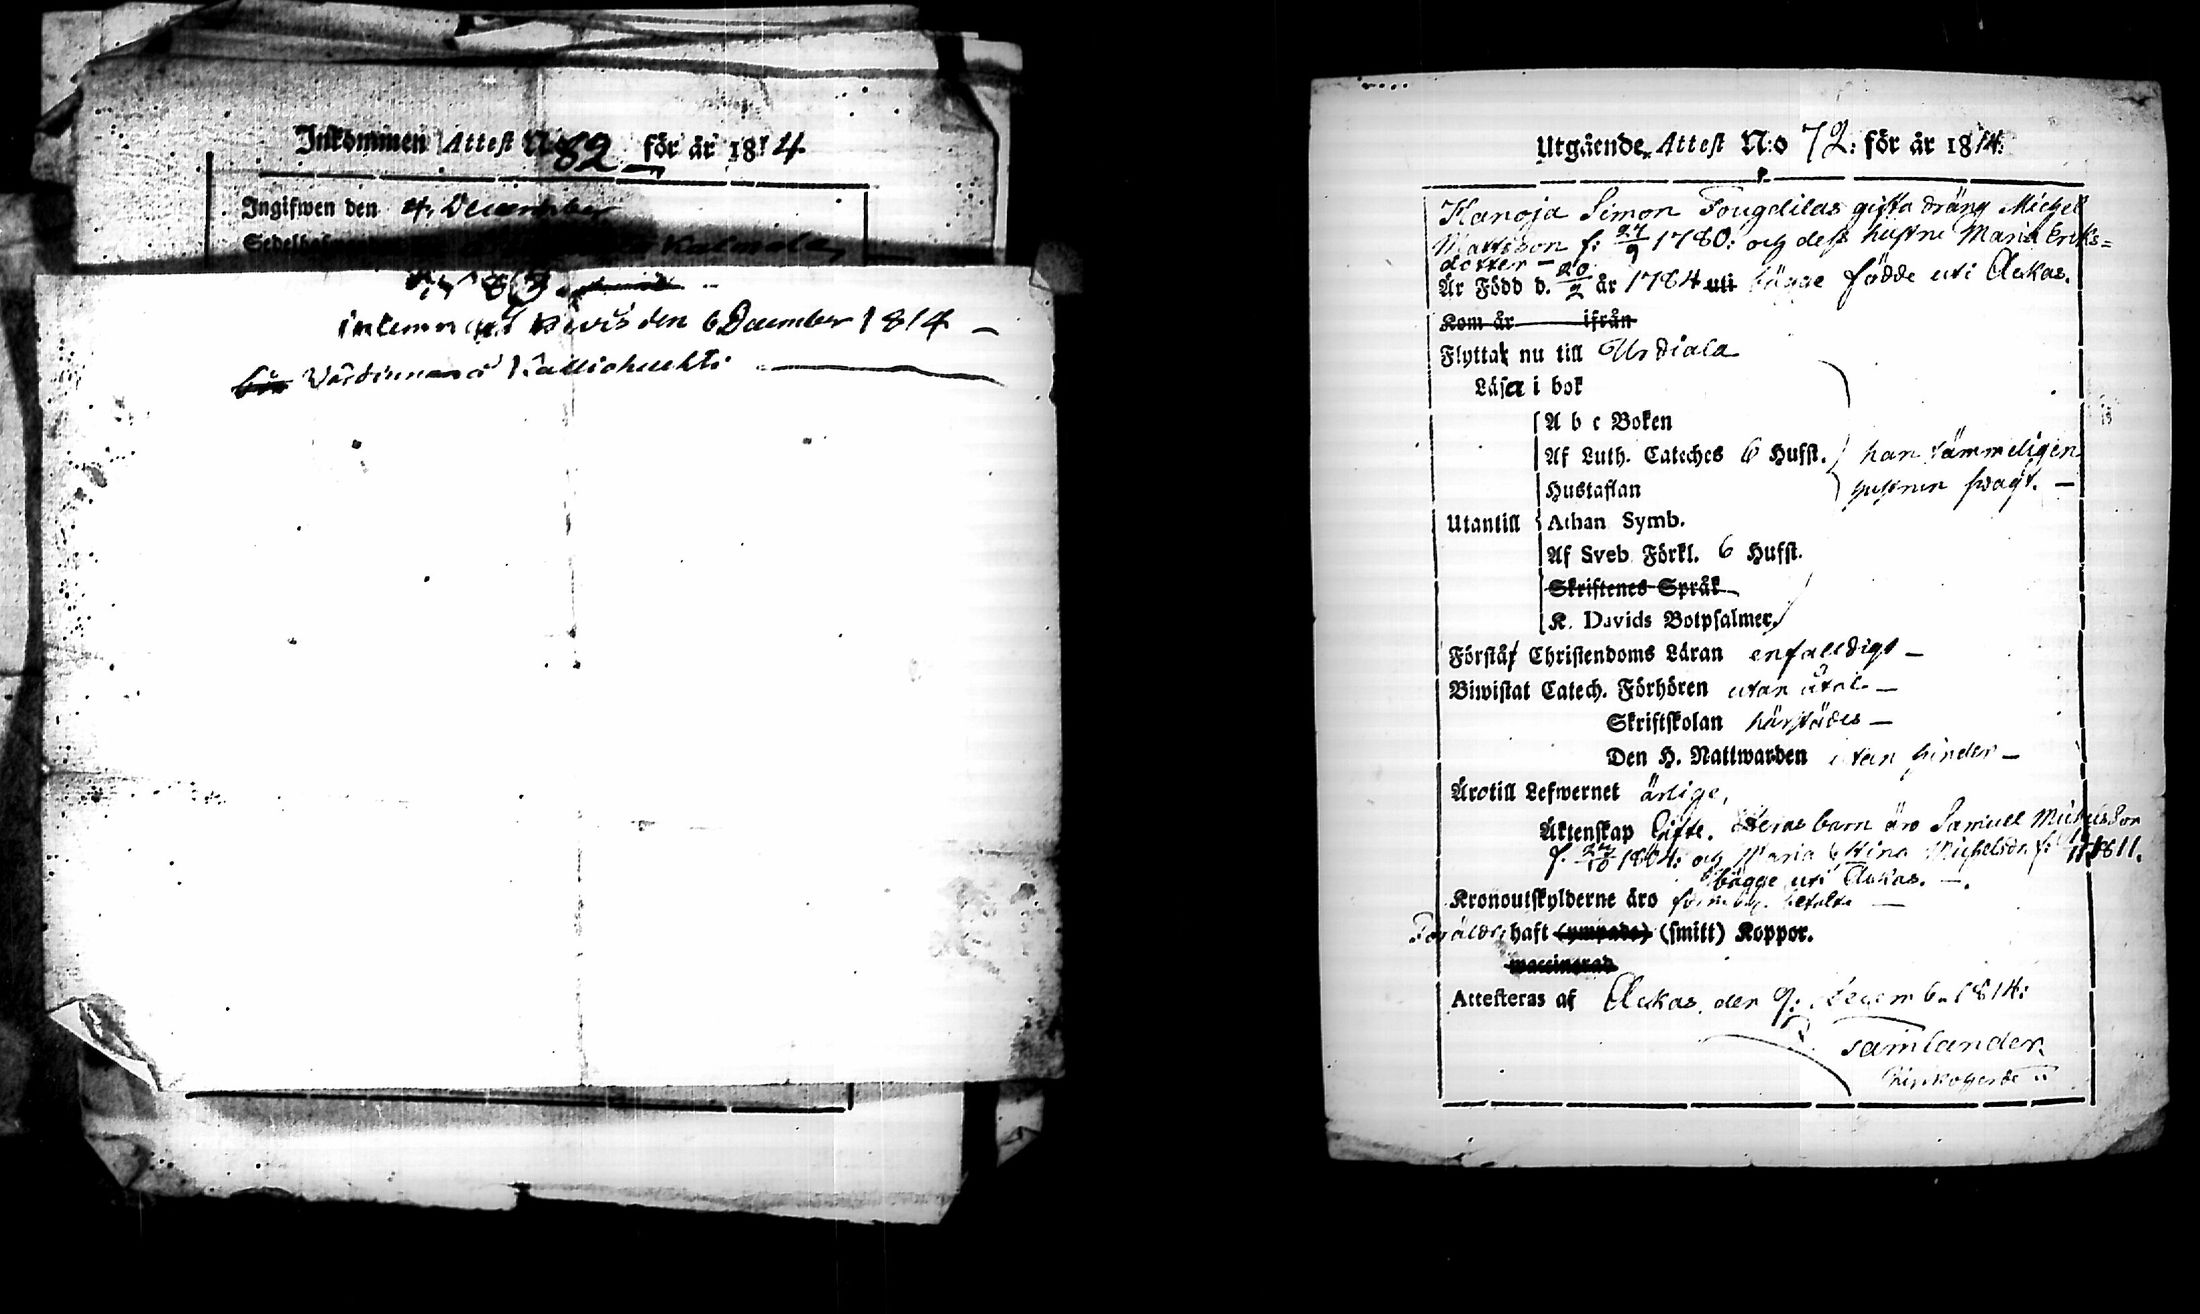 Inkommen Attest No 82 för år 1814
Ingifwen den 4. December
Kalmala
No 83
inlemnad bevis den 6 December 1814 –
Wärdinnan å Kalliohuchti
Utgående Attest N:o 72: för år 1814:
Kanoja Simon Fougdilas gifta dräng Michel
Mattsson f: 24/9 1780: och dess hustru Maria Eriks=
dotter –
Är Född d. 20/2 år 1784 uti bägge födde uti Ackas.
Kom år ifrån
Flytta nu till Urdiala
Läsa i bok
A b c Boken
Af Luth. Cateches 6 Hufst. han tämmeligen
Hustaflan hustrun svagt. –
Utantill Athan Symb.
Af Sveb. Förkl. 6 Hufst.
Skriftenes Språk
K. Davids Botpsalmer
Förstå Christendoms Läran enfaldigt –
Biwistat Catech. Förhören utan åtal –
Skriftskolan härstädes –
Den H. Nattwarden utan hinder –
Äro till Lefwernet ärlige,
Äktenskap Gifte. Deras barn äro Samuel Michelsson
f. 22/10 1804: och Maria Stina Michelsdr f: 1/11 1811.
bägge uti Ackas. –
Kronoutskylderne äro betalte –
haft (ympade) (smitt) Koppor.
waccinerad
Attesteras af Ackas, den 9: Decemb. 1814:
Tamlander
Kirkoherde